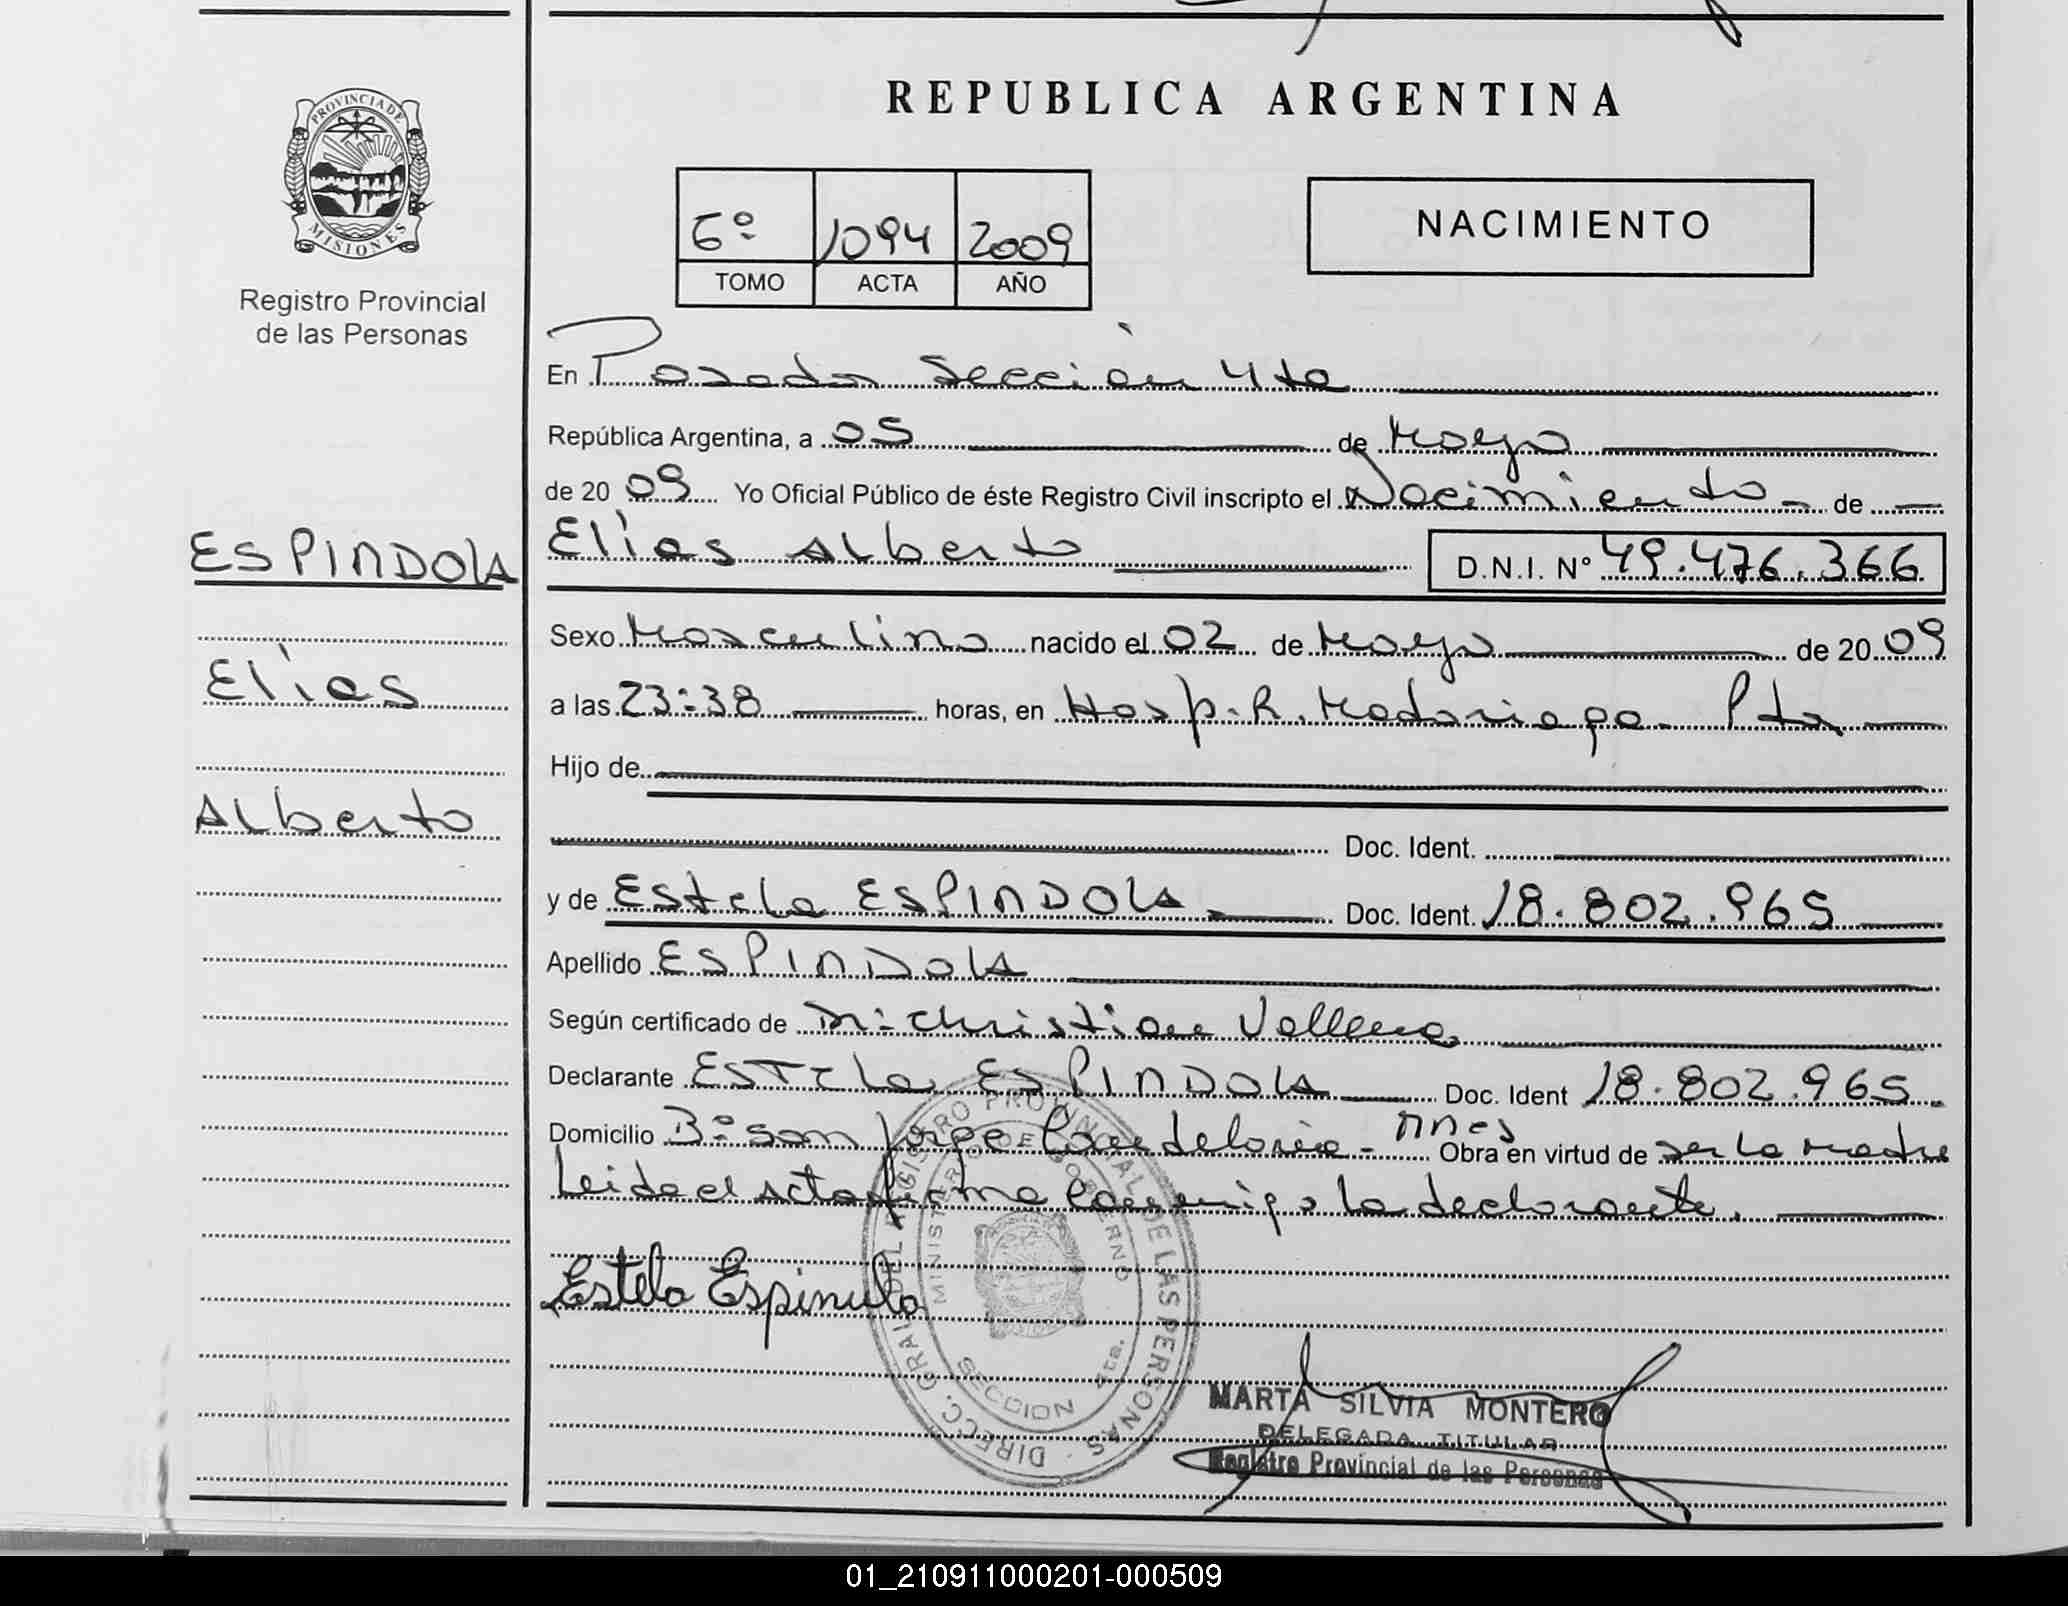 PROVINCIA DE
MISIONES
Registro Provincial
de las Personas
ESPINDOLA
Elías
Alberto
REPUBLICA ARGENTINA
6º 1094 2009
TOMO ACTA AÑO
NACIMIENTO
En Posadas Sección 4ta
República Argentina, a 05 de Mayo
de 2009 Yo Oficial Público de éste Registro Civil inscripto el Nacimiento - de
Elías Alberto D.N.I. Nº 49.476.366
Sexo Masculino nacido el 02 de Mayo de 2009
a las 23:38 horas, en Hosp. R. Madariaga - Pdas
Hijo de
Doc. Ident.
y de Estela ESPINDOLA Doc. Ident. 18.802.965
Apellido ESPINDOLA
Según certificado de Dr. Christian
Declarante ESTELA ESPINDOLA Doc. Ident 18.802.965.
Domicilio Bº San Jorge Candelaria - Mnes Obra en virtud de ser la madre
Leida el acta firma conmigo la declarante.
Estela Espindola
DIRECC. GRAL. DEL REGISTRO PROVINCIAL DE LAS PERSONAS
MINISTERIO DE GOBIERNO
SECCION 4ta.
MARTA SILVIA MONTERO
DELEGADA TITULAR
Registro Provincial de las Personas
01_210911000201-000509